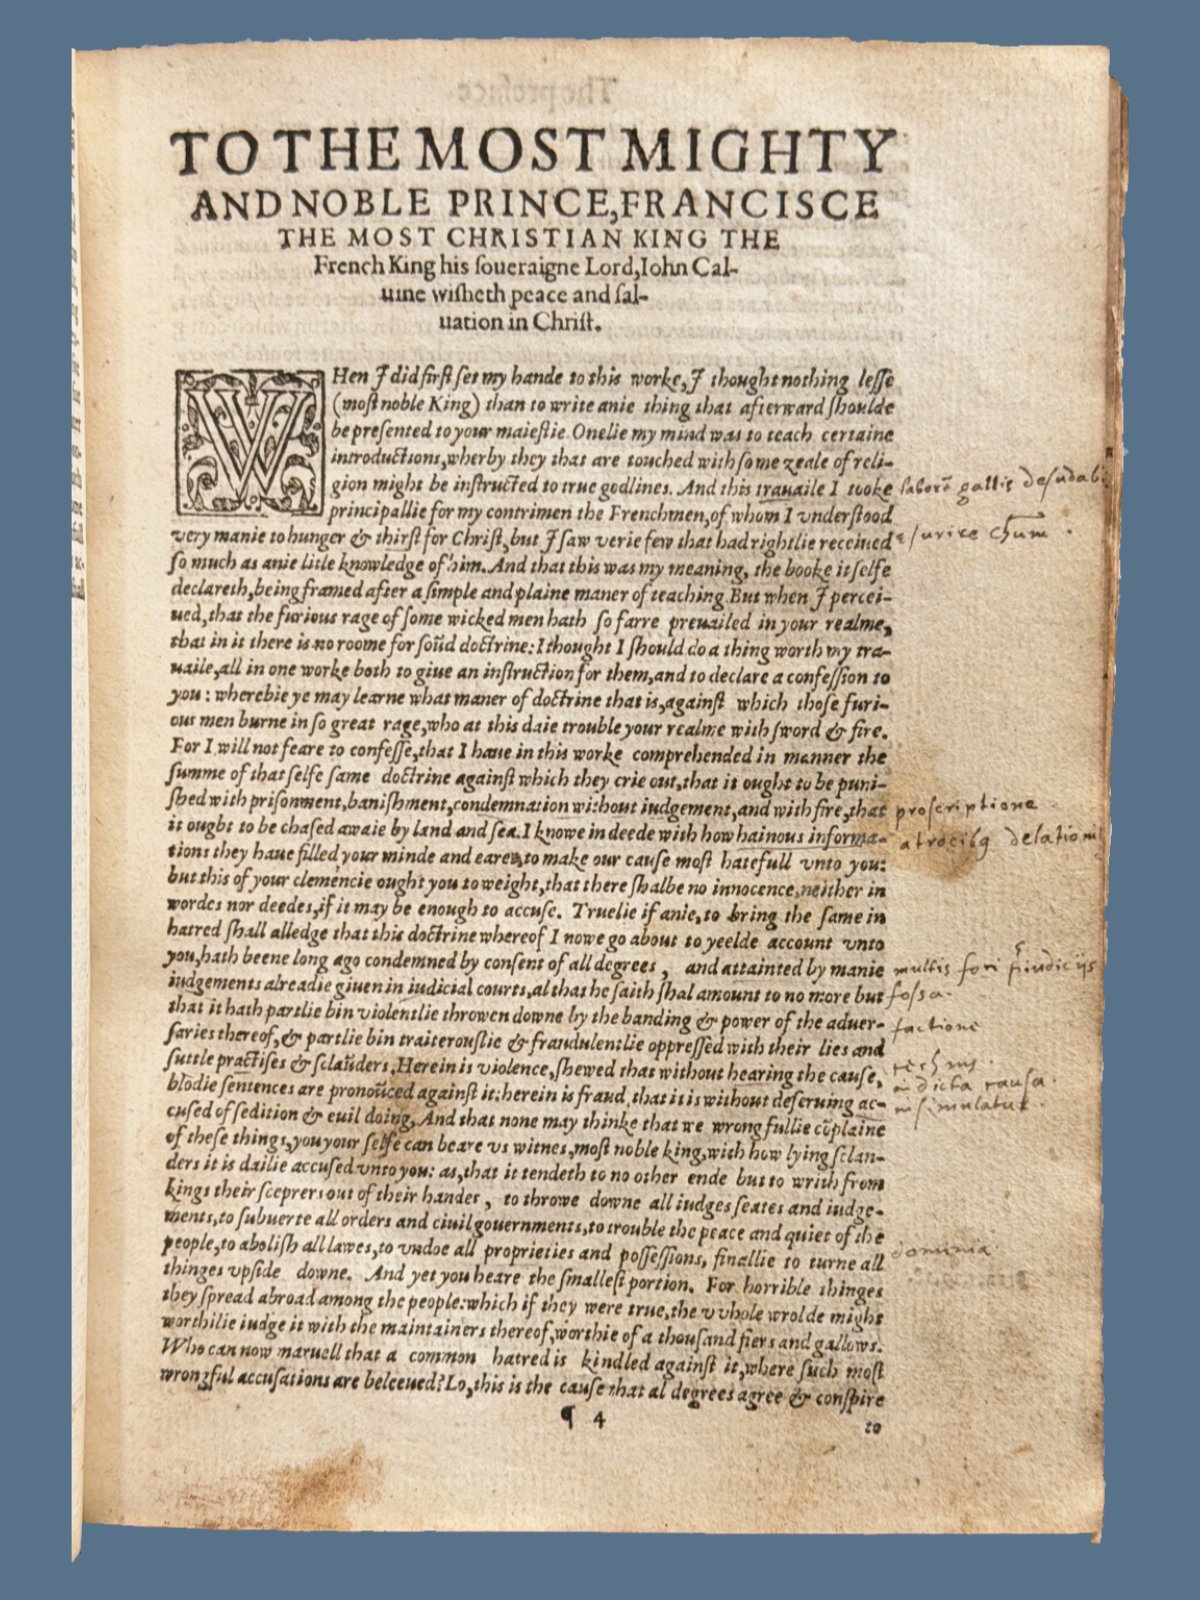 TO THE MOST MIGHTY
AND NOBLE PRINCE, FRANCISCE
THE MOST CHRISTIAN KING THE
French King his soueraigne Lord, Iohn Cal-
uine wisheth peace and sal-
uation in Christ.
WHen I did first set my hande to this worke, I thought nothing lesse
(most noble King) than to write anie thing that afterward shoulde
be presented to your maiestie. Onelie my mind was to teach certaine
introductions, wherby they that are touched with some zeale of reli-
gion might be instructed to true godlines. And this trauaile I tooke
laborē gallis desudab
principallie for my contrimen the Frenchmen, of whom I vnderstood
very manie to hunger & thirst for Christ, but I saw verie few that had rightlie receiued
esurire Chūm.
so much as anie litle knowledge of him. And that this was my meaning, the booke it selfe
declareth, being framed after a simple and plaine maner of teaching. But when I percei-
ued, that the furious rage of some wicked men hath so farre preuailed in your realme,
that in it there is no roome for soūd doctrine: I thought I should do a thing worth my tra-
uaile, all in one worke both to giue an instruction for them, and to declare a confession to
you: wherebie ye may learne what maner of doctrine that is, against which those furi-
ous men burne in so great rage, who at this daie trouble your realme with sword & fire.
For I will not feare to confesse, that I haue in this worke comprehended in manner the
summe of that selfe same doctrine against which they crie out, that it ought to be puni-
shed with prisonment, banishment, condemnation without iudgement, and with fire, that
proscriptione
it ought to be chased awaie by land and sea. I knowe in deede with how hainous informa-
atrocibq delationi
tions they haue filled your minde and eares, to make our cause most hatefull vnto you:
but this of your clemencie ought you to weight, that there shalbe no innocence, neither in
wordes nor deedes, if it may be enough to accuse. Truelie if anie, to bring the same in
hatred shall alledge that this doctrine whereof I nowe go about to yeelde account vnto
you, hath beene long ago condemned by consent of all degrees, and attainted by manie
multis fori piudicijs
iudgements alreadie giuen in iudicial courts, al that he saith shal amount to no more but
fossa.
that it hath partlie bin violentlie throwen downe by the banding & power of the aduer-
factione
saries thereof, & partlie bin traiterouslie & fraudulentlie oppressed with their lies and
suttle practises & sclaūders. Herein is violence, shewed that without hearing the cause,
indicta causa.
blodie sentences are pronoūced against it: herein is fraud, that it is without deseruing ac-
insimulatur.
cused of sedition & euil doing. And that none may thinke that we wrongfullie cōplaine
of these things, you your selfe can beare vs witnes, most noble king, with how lying sclan-
ders it is dailie accused vnto you: as, that it tendeth to no other ende but to writh from
kings their scepters out of their handes, to throwe downe all iudges seates and iudge-
ments, to subuerte all orders and ciuil gouernments, to trouble the peace and quiet of the
people, to abolish all lawes, to vndoe all proprieties and possessions, finallie to turne all
dominia
thinges vpside downe. And yet you heare the smallest portion. For horrible thinges
they spread abroad among the people: which if they were true, the vvhole wrolde might
worthilie iudge it with the maintainers thereof, worthie of a thousand fiers and gallows.
Who can now maruell that a common hatred is kindled against it, where such most
wrongful accusations are beleeued? Lo, this is the cause that al degrees agree & conspire
¶ 4
to